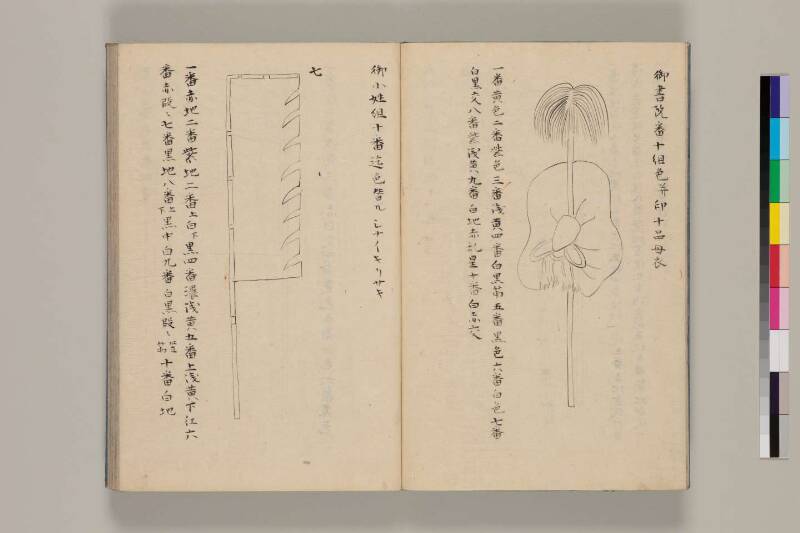 御書院番十組色并印十品母衣
一番黄色二番紫色三番浅黄四番白黒筋五番黒色六番白色七番
白黒交八番紫浅黄九番白地赤 星十番白赤交
御小姓組十番迄色皆 シナイキリサキ
七
一番赤地二番紫地二番上白下黒四番濃浅黄五番上浅黄下江六
番赤段々七番黒地八番上下黒中白九番白黒段々筋十番白地